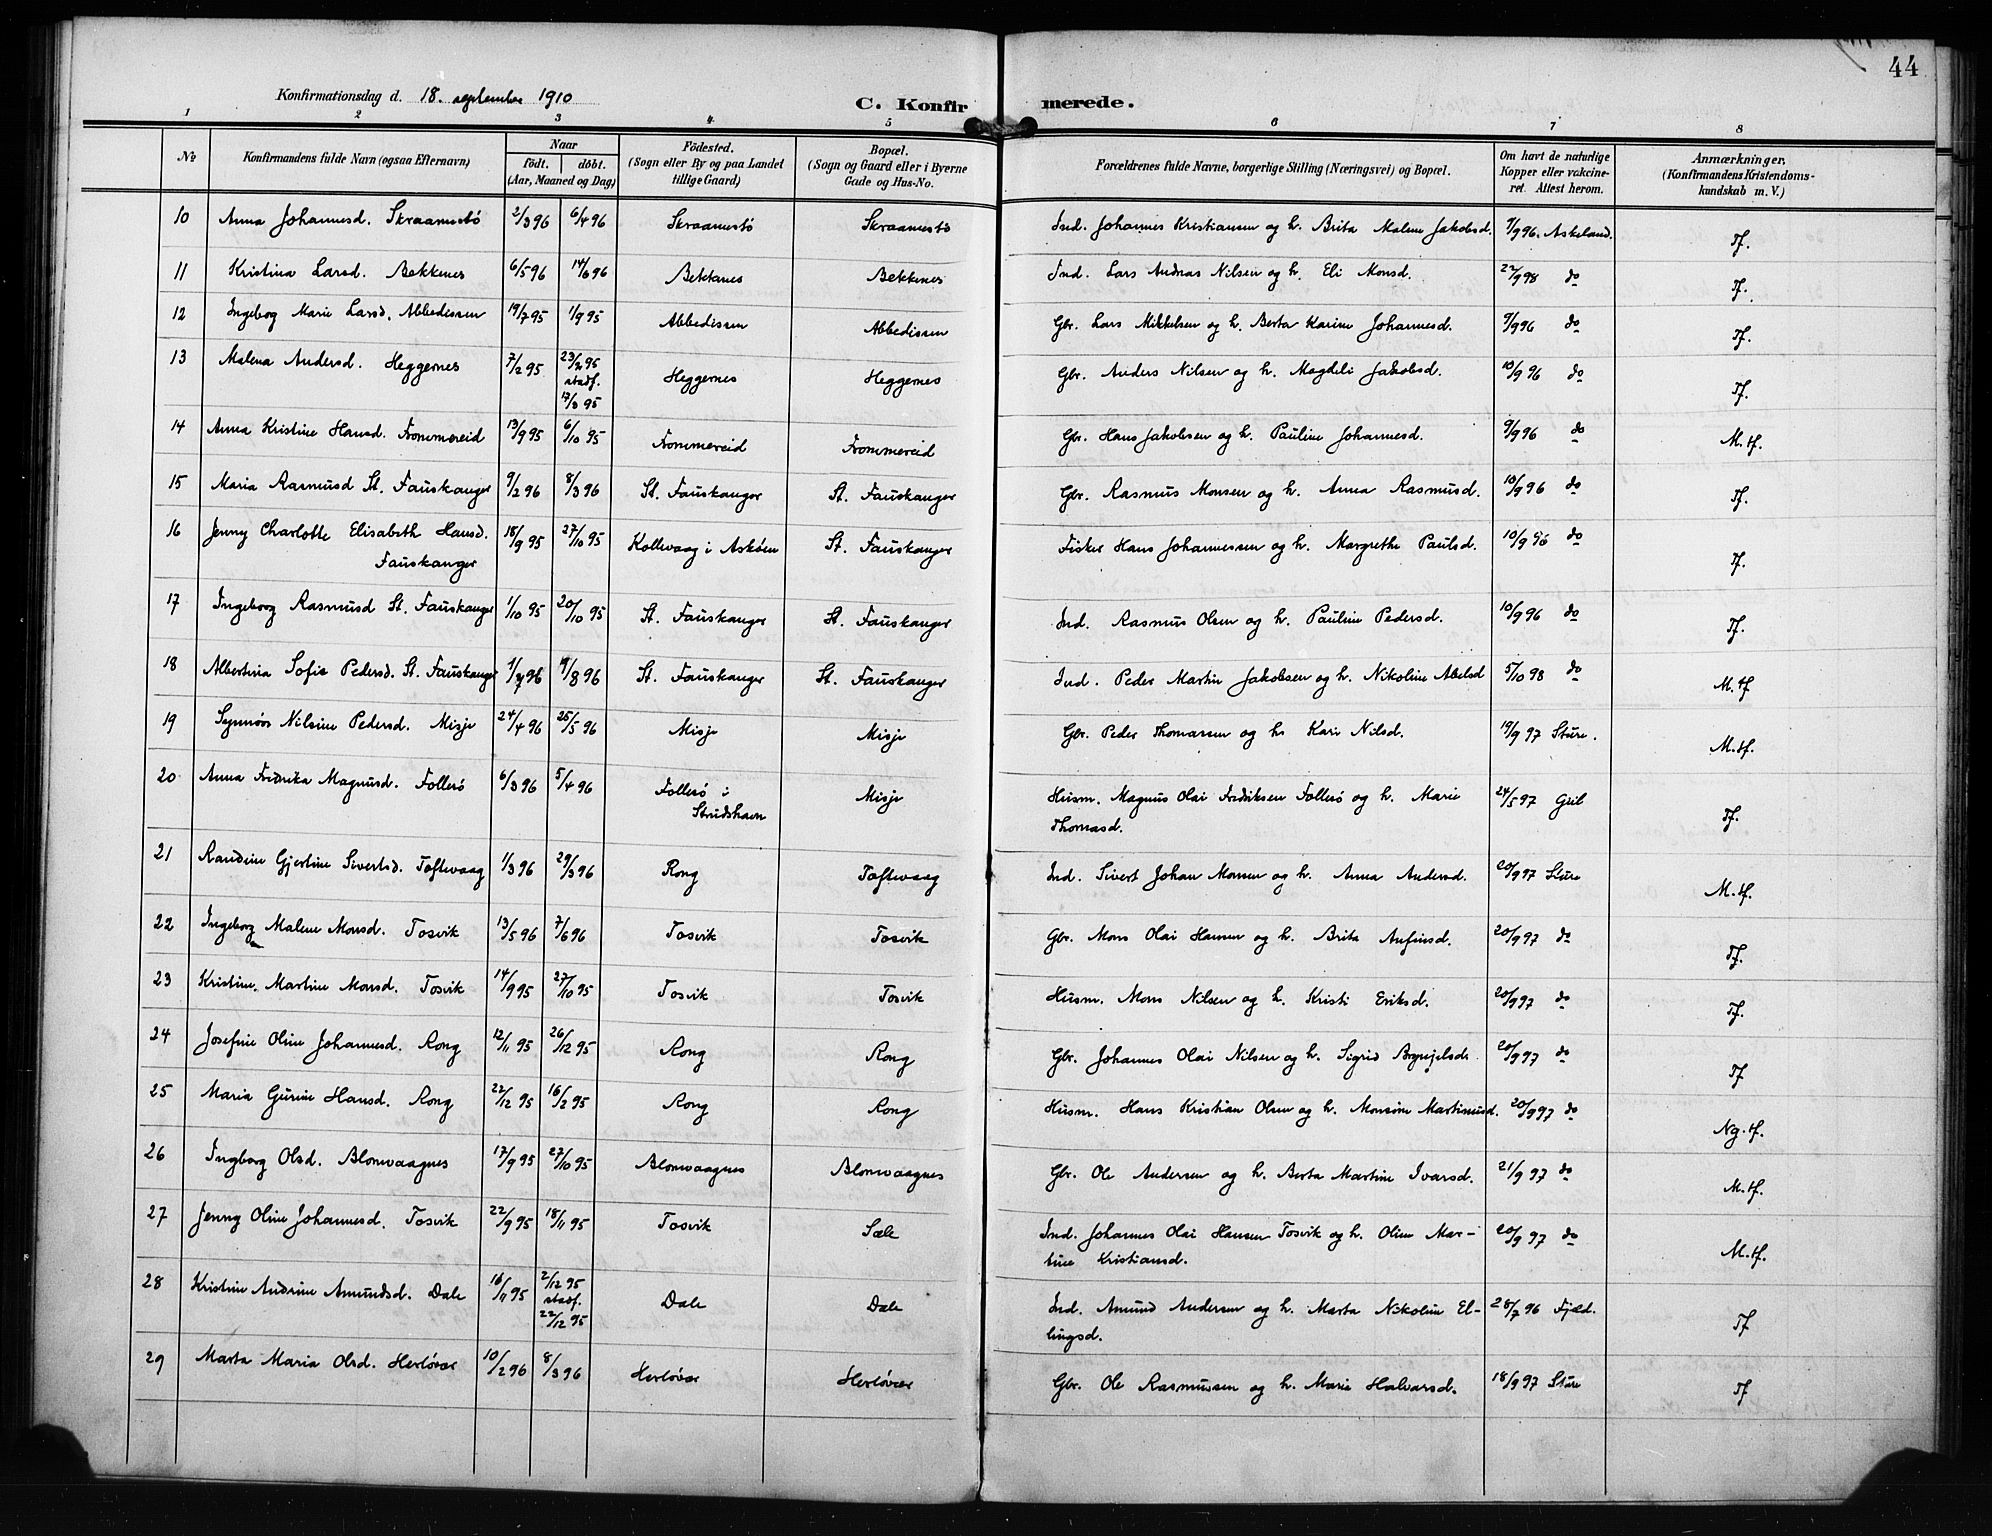 44
Konfirmationsdag d. 18. september 1910
C. Konfirmerede.
1 2 3 4 5 6 7 8
No
Konfirmandens fulde Navn (ogsaa Efternavn)
Naar
født. døbt.
(Aar, Maaned og Dag)
Fødested.
(Sogn eller By og paa Landet
tillige Gaard)
Bopæl.
(Sogn og Gaard eller i Byerne
Gade og Hus-No.
Forældrenes fulde Navne, borgerlige Stilling (Næringsvei) og Bopæl.
Om havt de naturlige
Kopper eller vakcine-
ret. Attest herom.
Anmærkninger.
(Konfirmandens Kristendoms-
kundskab m. V.)
10 Anna Johannesd. Skraamestø 2/3 96 6/4 96 Skraamestø Skraamestø Ind. Johannes Kristiansen og h. Brita Malene Jakobsd. 9/9 96. Askeland. Tf.
11 Kristina Larsd. Bekkenes 6/5 96 14/6 96 Bekkenes Bekkenes Ind. Lars Andreas Nilsen og h. Eli Monsd. 22/9 98 do Tf.
12 Ingeborg Marie Larsd. Abbedissen 19/7 95 1/9 95 Abbedissen Abbedissen Gbr. Lars Mikkelsen og h. Berta Karine Johannesd. 9/9 96 do Tf.
13 Malena Andersd. Heggernes 7/2 95 23/2 95 stadf. 17/3 95 Heggernes Heggernes Gbr. Anders Nilsen og h. Magdeli Jakobsd. 10/9 96 do Tf.
14 Anna Kristine Hansd. Frommereid 13/9 95 6/10 95 Frommereid Frommereid Gbr. Hans Jakobsen og h. Pauline Johannesd. 9/9 96 do M.tf.
15 Maria Rasmusd St. Fauskanger 9/2 96 8/3 96 St. Fauskanger St. Fauskanger Gbr. Rasmus Monsen og h. Anna Rasmusd. 10/9 96 do Tf.
16 Jenny Charlotte Elisabeth Hansd. 18/9 95 27/10 95 Kollevaag i Askøen St. Fauskanger Fisker Hans Johannessen og h. Margrethe Paulsd. 10/9 96 do Tf.
Fauskanger
17 Ingeborg Rasmusd St. Fauskanger 1/10 95 20/10 95 St. Fauskanger St. Fauskanger Ind. Rasmus Olsen og h. Pauline Pedersd. 10/9 96 do Tf.
18 Albertina Sofie Pedersd. St. Fauskanger 1/7 96 4/8 96 St. Fauskanger St. Fauskanger Ind. Peder Martin Jakobsen og h. Nikoline Abelsd 5/10 98 do M.tf
19 Synnøv Nilsine Pedersd. Misje 24/4 96 25/5 96 Misje Misje Gbr. Peder Thomassen og h. Kari Nilsd. 19/9 97 Sture. M.tf.
20 Anna Fredrika Magnusd. Follesø 6/3 96 5/4 96 Follesø i Strudshavn Misje Husm. Magnus Olai Fredriksen Follesø og h. Marie 24/5 97 Tf.
Thomasd.
21 Randine Gjertine Sivertsd. Toftevaag 1/3 96 29/3 96 Rong Toftevaag Ind. Sivert Johan Monsen og h. Anna Andersd. 20/9 97 Sture M.tf.
22 Ingeborg Malene Monsd. Tosvik 13/5 96 7/6 96 Tosvik Tosvik Gbr. Mons Olai Hansen og h. Brita Anfinsd. 20/9 97 do Tf.
23 Kristine Martine Monsd. Tosvik 14/9 95 27/10 95 Tosvik Tosvik Husm. Mons Nilsen og h. Kristi Eriksd. 20/9 97 do Tf.
24 Josefine Oline Johannesd. Rong 12/11 95 26/12 95 Rong Rong Gbr. Johannes Olai Nilsen og h. Sigrid Brynjelsd. 20/9 97 do Tf
25 Maria Gurine Hansd. Rong 22/12 95 16/2 95 Rong Rong Husm. Hans Kristian Olsen og h. Monsine Martinusd. 20/9 97 do Ng.tf.
26 Ingborg Olsd. Blomvaagnes 17/9 95 27/10 95 Blomvaagnes Blomvaagnes Gbr. Ole Andersen og h. Berta Martine Ivarsd. 21/9 97 do M.tf.
27 Jenny Oline Johannesd. Tosvik 22/9 95 18/11 95 Tosvik Sæle Ind. Johannes Olai Hansen Tosvik og h. Oline Mar- 20/9 97 do M.tf.
tine Kristiansd.
28 Kristine Andrine Amundsd. Dale 16/11 95 2/12 95 stadf. 22/12 95 Dale Dale Ind. Amund Andersen og h. Marta Nikoline El- 28/7 96 Fjeld. Tf
lingsd.
29 Marta Maria Olsd. Herløvær 10/2 96 8/3 96 Herløvær Herløvær Gbr. Ole Rasmussen og h. Marie Halvarsd. 18/9 97 Sture Tf